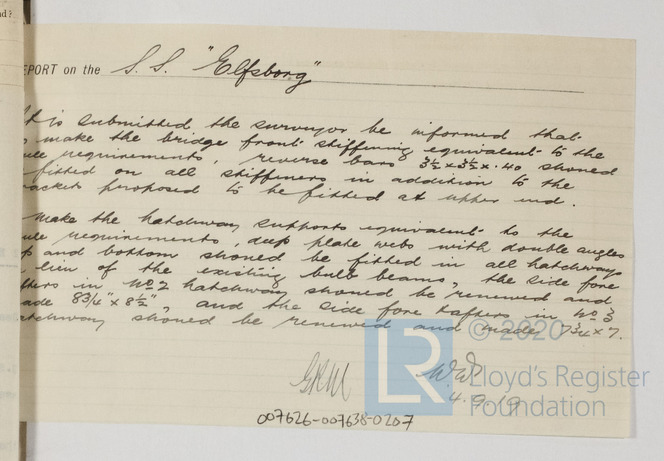 nd?
EPORT on the S.S. "Elfsborg"
It is submitted the surveyor be informed that
make the bridge front stiffening equivalent to the
ule requirements, reverse bars 3½ x 3½ x .40 should
fitted on all stiffeners in addition to the
rackets proposed to be fitted at upper end.
make the hatchway supports equivalent to the
ule requirements, deep plate webs with double angles
p and bottom should be fitted in all hatchways
lieu of the existing bulb beams, the side fore
fters in No 2 hatchway should be renewed and
ade 8¾" x 8½", and the side fore & afters in No 3
atchway should be renewed and made 7¾ x 7.
GRM W.W.
4.9.19
007626-007638-0207
© 2020
LR
Lloyd's Register
Foundation